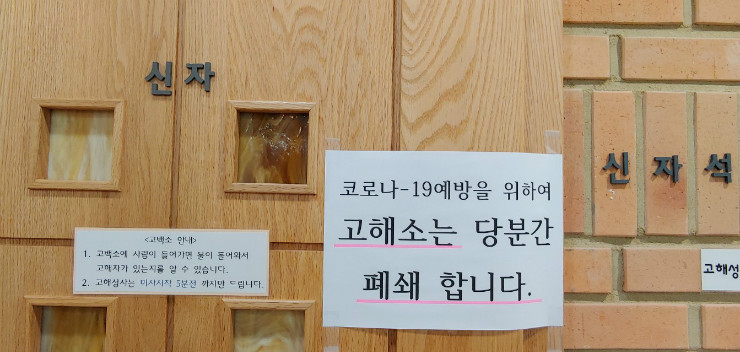 신자
<고백소 안내>
1. 고백소에 사람이 들어가면 불이 들어와서
고해자가 있는지를 알 수 있습니다.
2. 고해성사는 미사시작 5분전 까지만 드립니다.
코로나-19예방을 위하여
고해소는 당분간
폐쇄 합니다.
신자석
고해성